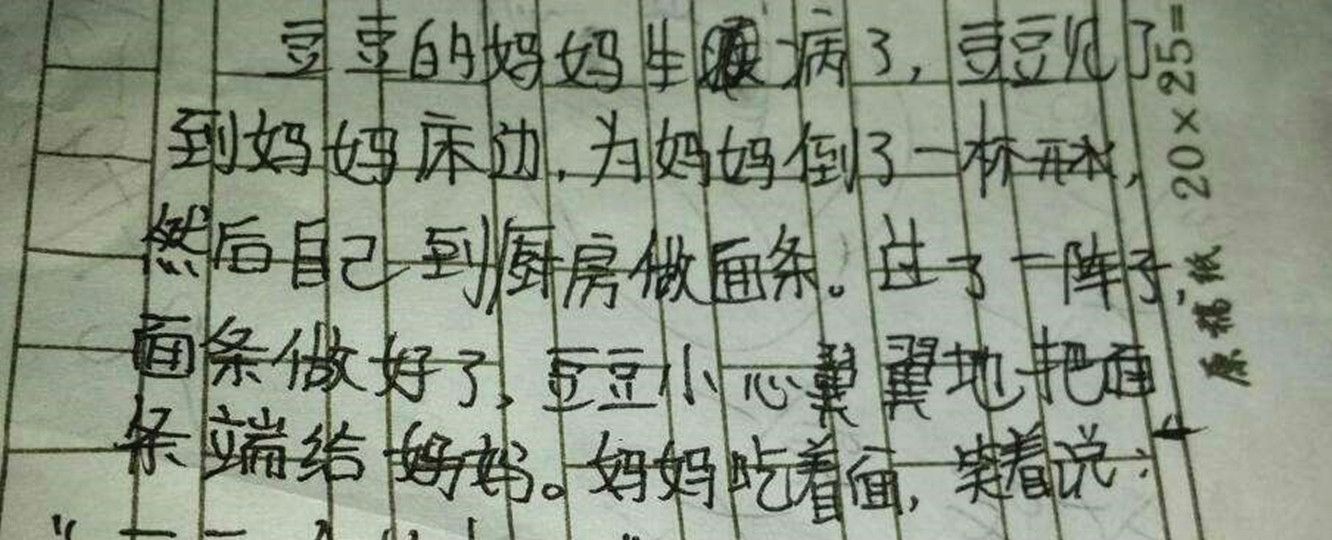 豆豆的妈妈生病了，豆豆见了
到妈妈床边，为妈妈倒了一杯开水，
然后自己到厨房做面条。过了一阵子，
面条做好了，豆豆小心翼翼地把面
条端给妈妈。妈妈吃着面，笑着说：
20×25=
原稿纸